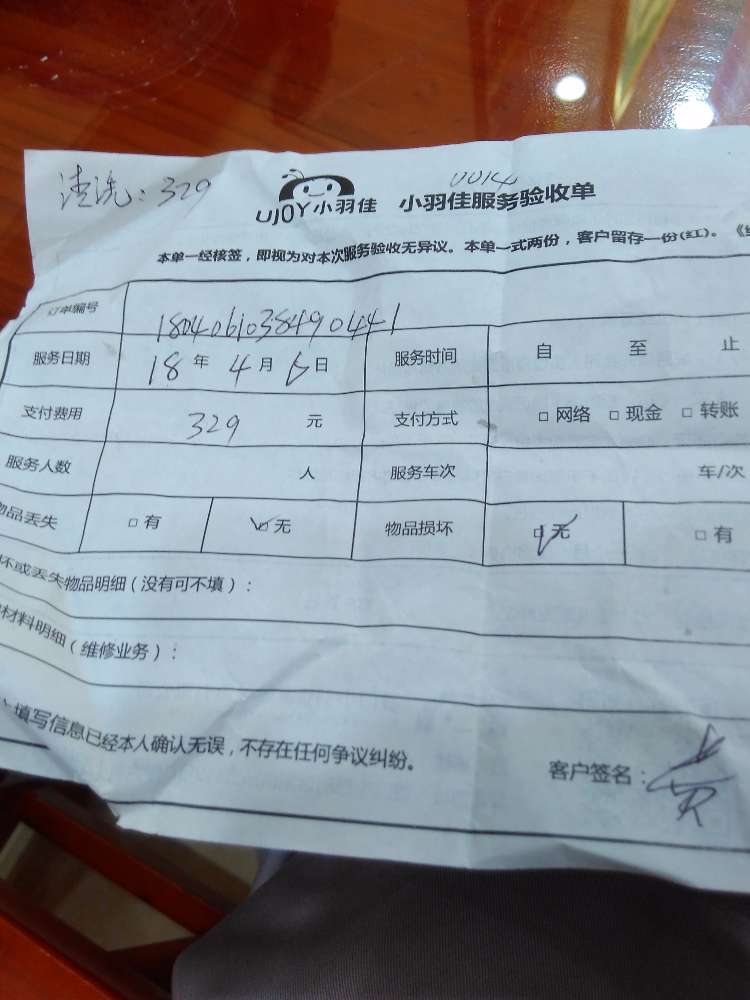 清洗：329
0014
UJOY小羽佳 小羽佳服务验收单
本单一经核签，即视为对本次服务验收无异议。本单一式两份，客户留存一份(红)。《
订单编号 180406103849044 1
服务日期 18年4月6日 服务时间 自 至 止
支付费用 329 元 支付方式 □网络 □现金 □转账
服务人数 人 服务车次 车/次
物品丢失 □有 ☑无 物品损坏 ☑无 □有
坏或丢失物品明细（没有可不填）：
材料明细（维修业务）：
填写信息已经本人确认无误，不存在任何争议纠纷。
客户签名：